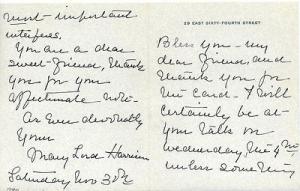 29 EAST SIXTY-FOURTH STREET
Bless you - my
dear friend, and
thank you for
the card - I will
certainly be at
your talk on
Wednesday, Nov 4th,
unless something
most important
interferes.
You are a dear
sweet friend, thank
you for your
affectionate note -
As ever devotedly
Yours
Mary Lord Harrison
Saturday, Nov 30th